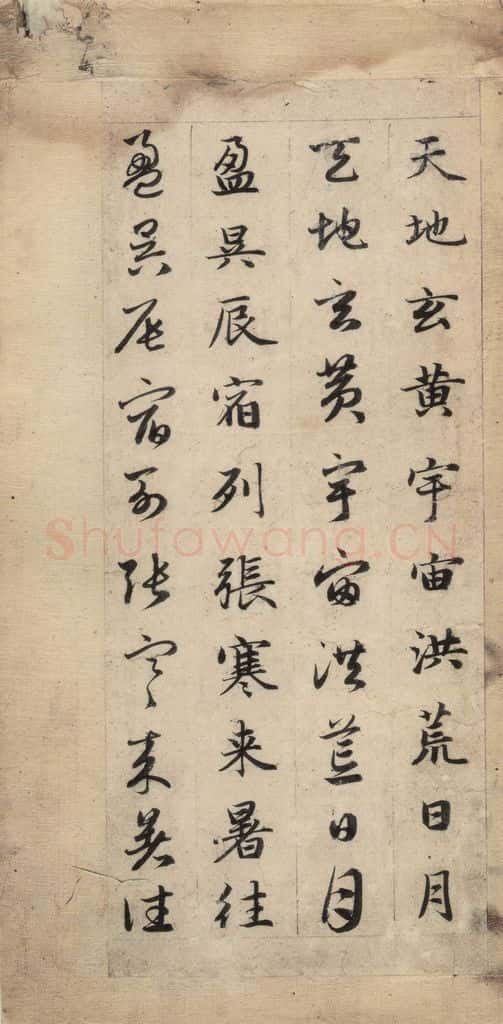 天地玄黄宇宙洪荒日月
天地玄黄宇宙洪荒日月
盈昃辰宿列張寒来暑往
盈昃辰宿列張寒来暑往
Shufawang.CN